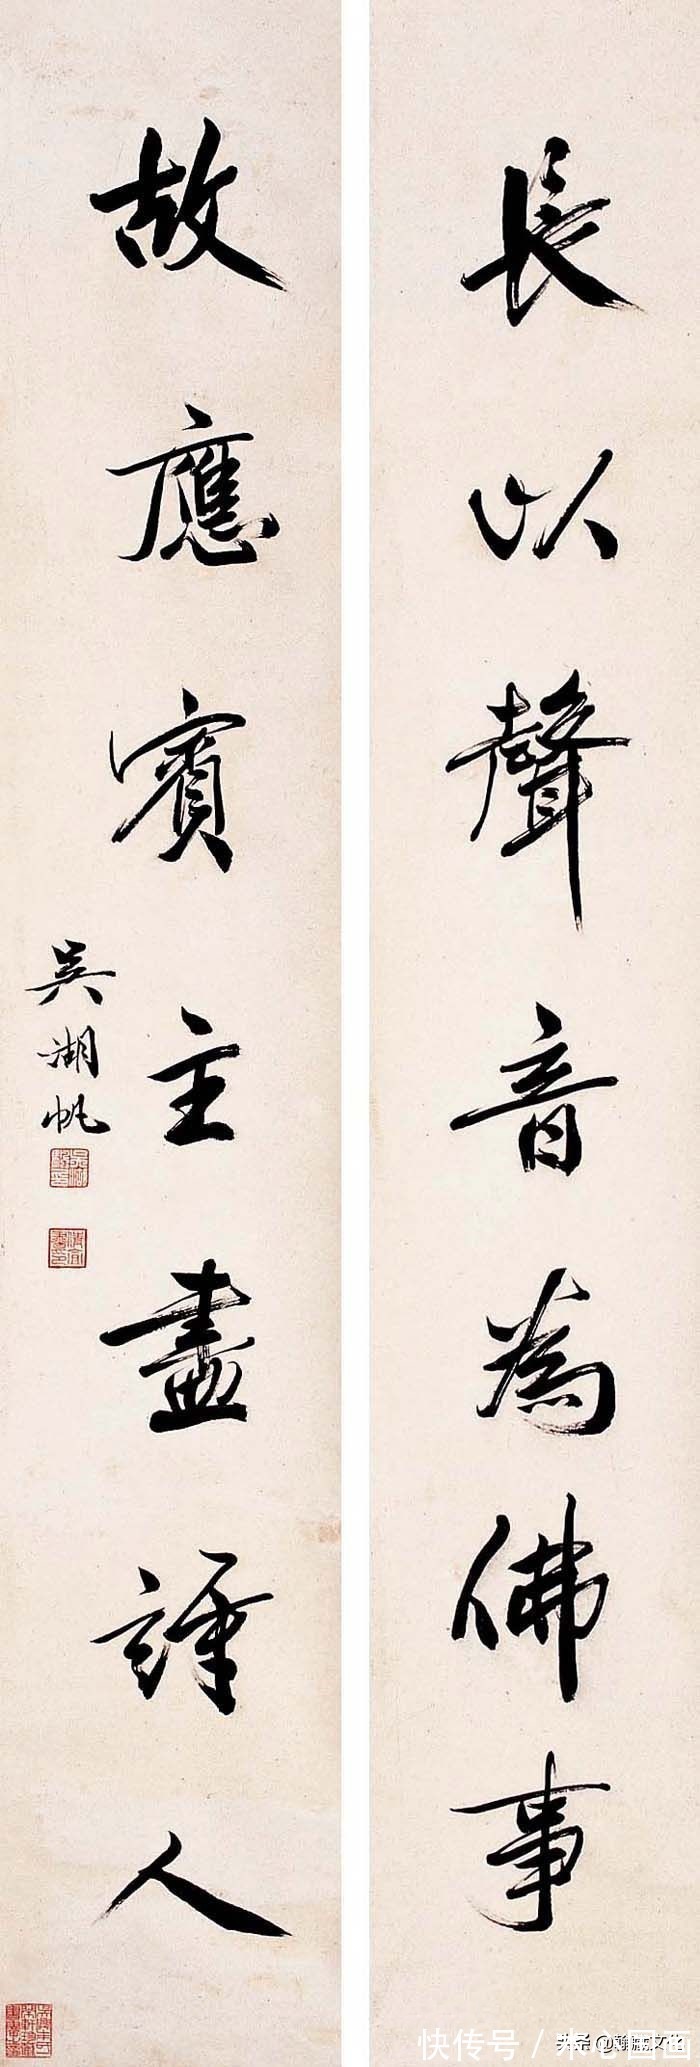 長以聲音為佛事
故應賓主盡詩人
吳湖帆
快传号 / 国画